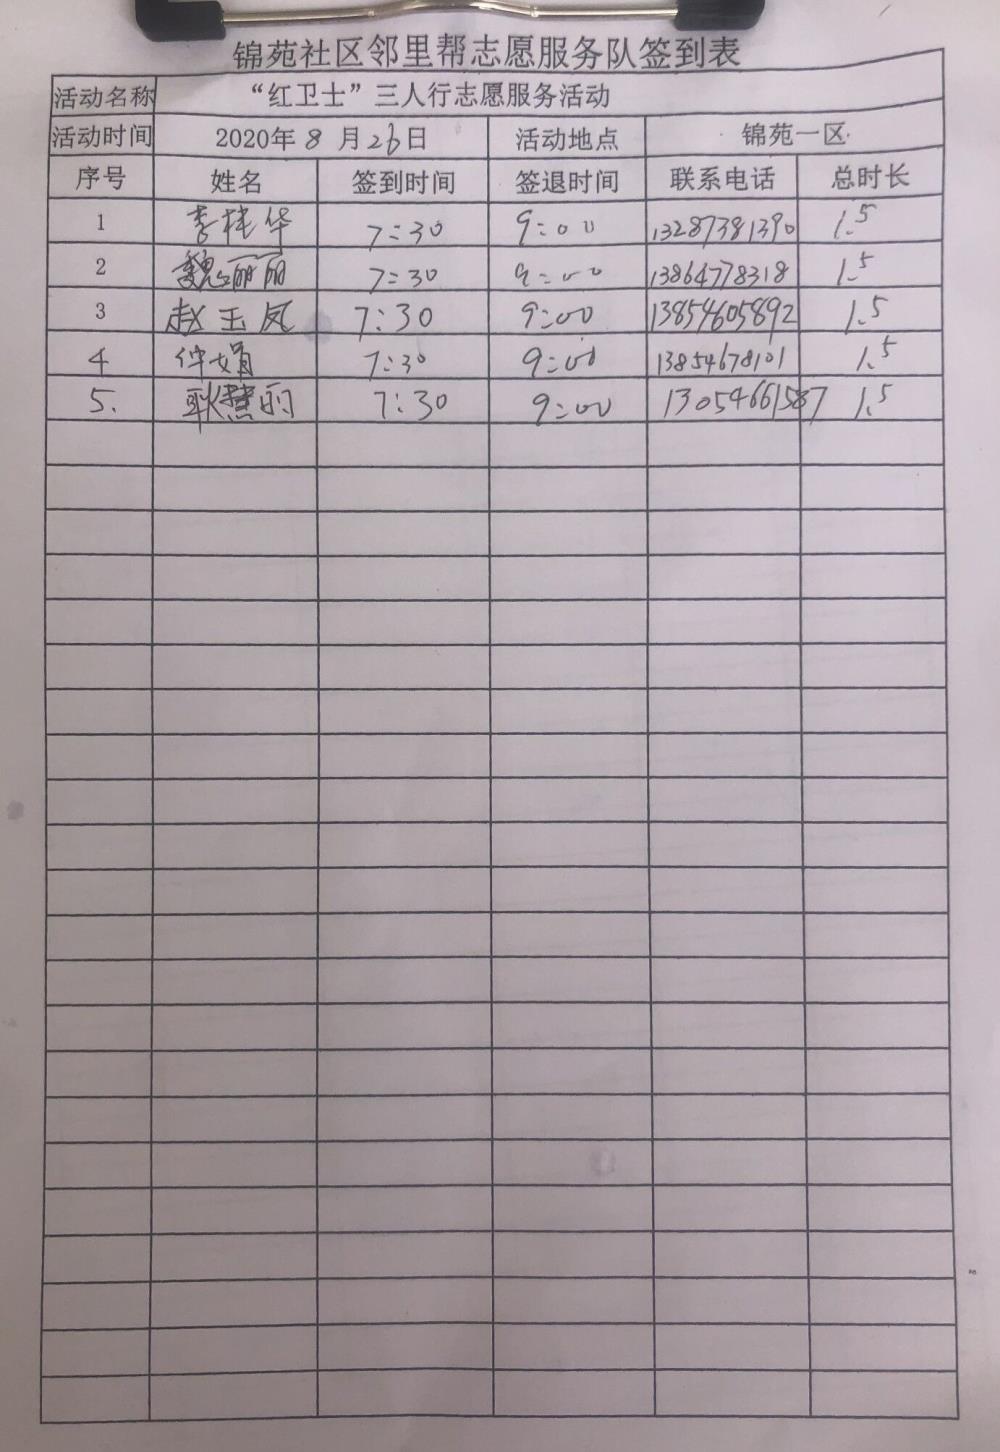 锦苑社区邻里帮志愿服务队签到表
活动名称 “红卫士”三人行志愿服务活动
活动时间 2020年8月26日 活动地点 锦苑一区
序号 姓名 签到时间 签退时间 联系电话 总时长
1 李桂华 7:30 9:00 13287381390 1.5
2 魏丽丽 7:30 9:00 13864778318 1.5
3 赵玉凤 7:30 9:00 13854605892 1.5
4 仲娟 7:30 9:00 13854678101 1.5
5. 耿慧丽 7:30 9:00 13054661587 1.5